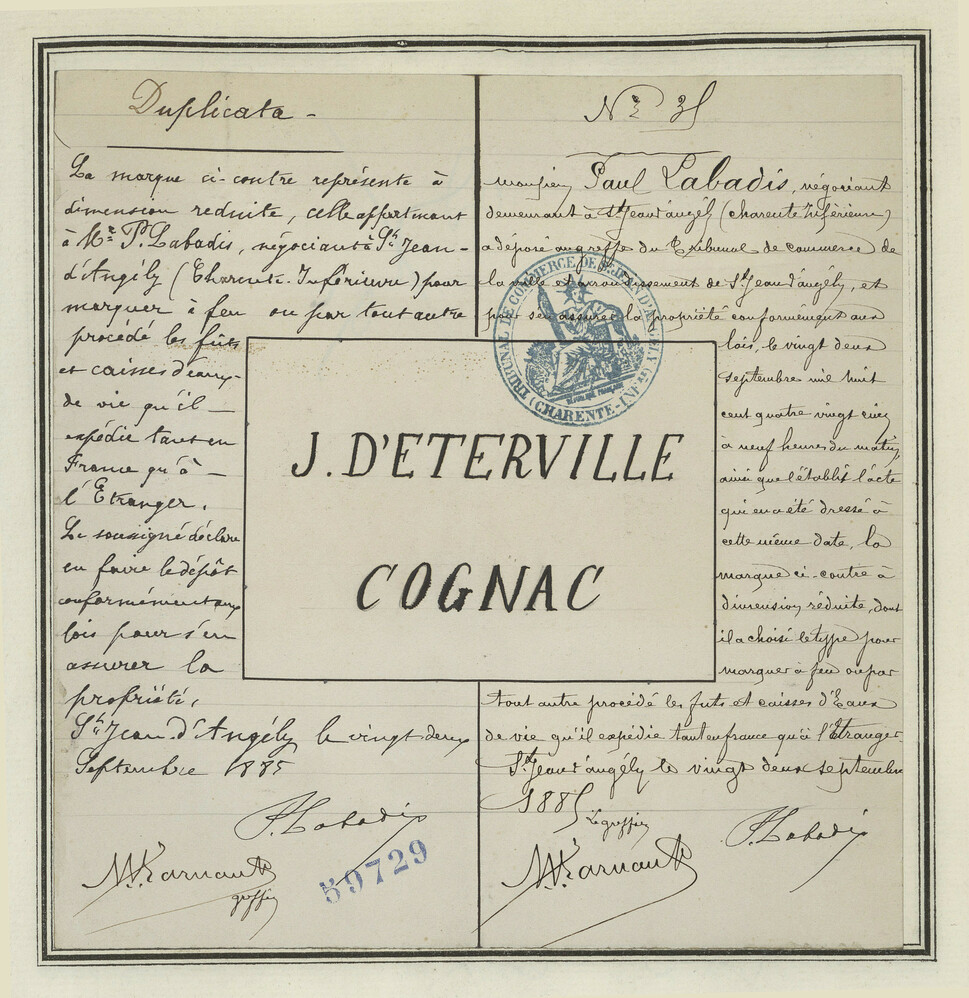 Duplicata -
La marque ci-contre représente à
dimension reduite, celle appartenant
à Mr. P. Labadis, négociant à St. Jean-
d'Angély (Charente-Inférieure) pour
marquer à feu ou par tout autre
procédé les futs
et caisses d'eaux-
de vie qu'il
expédie tant en
France qu'à
l'Etranger.
Le soussigné déclare
en faire le dépôt
conformément aux
lois pour s'en
assurer la
propriété.
St. Jean-d'Angély le vingt deux
Septembre 1885
P. Labadis
greffier
59729
No 35
Monsieur Paul Labadis, négociant
demeurant à St Jean d'angély (charente Inférieure)
a déposé au greffe du Tribunal de commerce de
la ville et arrondissement de St Jean d'angély, et
pour s'en assurer la propriété conformément aux
lois, le vingt deux
septembre mil huit
cent quatre vingt cinq
à neuf heures du matin,
ainsi que l'établit l'acte
qui en a été dressé à
cette même date, la
marque ci-contre à
dimension réduite, dont
il a choisi le type pour
marquer à feu ou par
tout autre procédé les futs et caisses d'Eaux
de vie qu'il expédie tant en france qu'à l'Etranger.
St Jean d'angély le vingt deux septembre
1885
Le greffier
P. Labadis
TRIBUNAL DE COMMERCE DE St JEAN D'ANGELY
(CHARENTE-INFre)
J. D'ETERVILLE
COGNAC